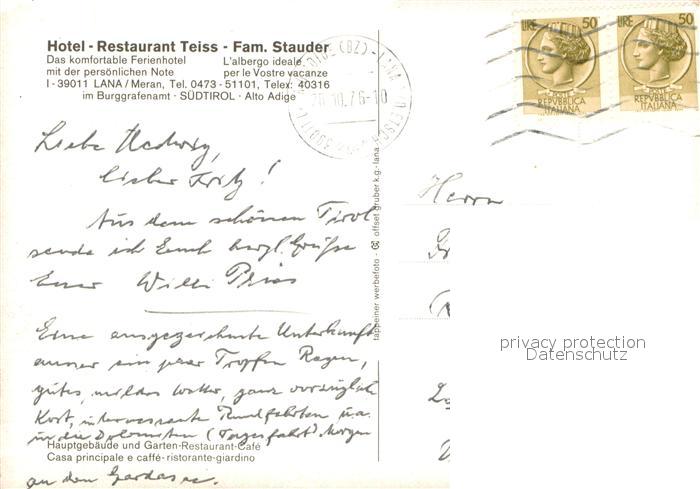 Hotel - Restaurant Teiss - Fam. Stauder
Das komfortable Ferienhotel L'albergo ideale
mit der persönlichen Note per le Vostre vacanze
I - 39011 LANA / Meran, Tel. 0473 - 51101, Telex: 40316
im Burggrafenamt - SÜDTIROL - Alto Adige
Liebe Hedwig,
lieber Fritz!
Aus dem schönen Tirol
sende ich Euch herzl. Grüße
Euer Willi
Eine ausgezeichnete Unterkunft
ausser ein paar Tropfen Regen,
gutes, mildes Wetter, ganz vorzügliche
Kost, interessante Rundfahrten u.a.
in die Dolomiten (Tagesfahrt). Morgen
an den Gardasee.
Hauptgebäude und Garten-Restaurant-Café
Casa principale e caffé-ristorante-giardino
tappeiner werbefoto - offset gruber k.g. - lana
(BZ) - LANA
LIRE 50
REPVBBLICA
ITALIANA
LIRE 50
REPVBBLICA
ITALIANA
Herrn
privacy protection
Datenschutz